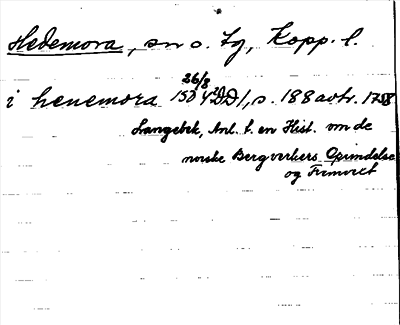 Hedemora, sn o. tg, Kopp. l.
26/8
i henemora 1504 DD 1, s. 188 avtr. 1758
Langebek, Anl. t. en Hist. om de
norske Bergverkers Oprindelse
og Fremvext